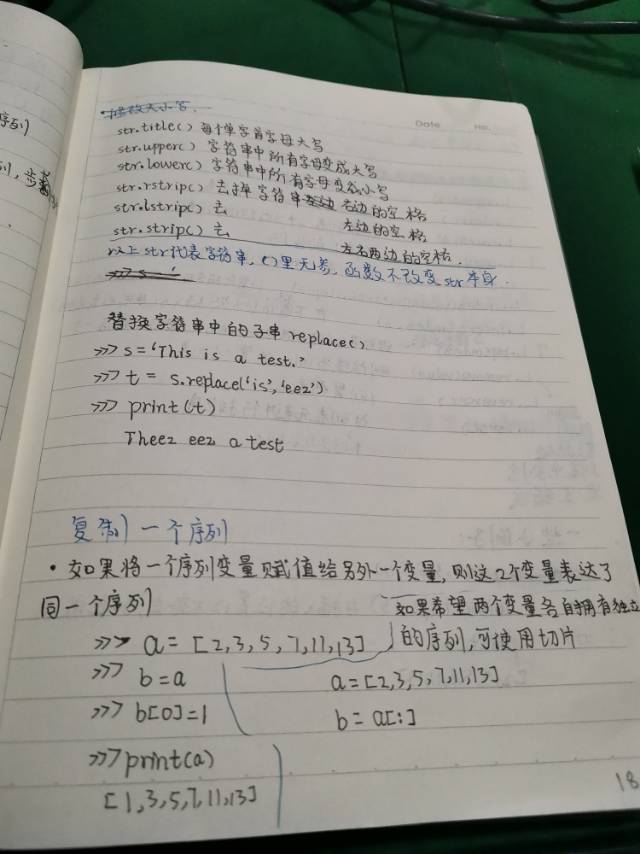 序列)
列,
Date No.
修改大小写.
str.title() 每个单字首字母大写
str.upper() 字符串中所有字母变成大写
str.lower() 字符串中所有字母变成小写
str.rstrip() 去掉字符串右边的空格
str.lstrip() 去 左边的空格
str.strip() 去 左右两边的空格.
以上str代表字符串, ()里无参, 函数不改变str本身.
>>> s = '
替换字符串中的子串 replace()
>>> s='This is a test.'
>>> t = s.replace('is','eez')
>>> print(t)
Theez eez a test
复制一个序列
• 如果将一个序列变量赋值给另外一个变量, 则这2个变量表达了
同一个序列
>>> a = [2,3,5,7,11,13]
>>> b=a
>>> b[0]=1
>>> print(a)
[1,3,5,7,11,13]
如果希望两个变量各自拥有独立
的序列,可使用切片
a=[2,3,5,7,11,13]
b=a[:]
18